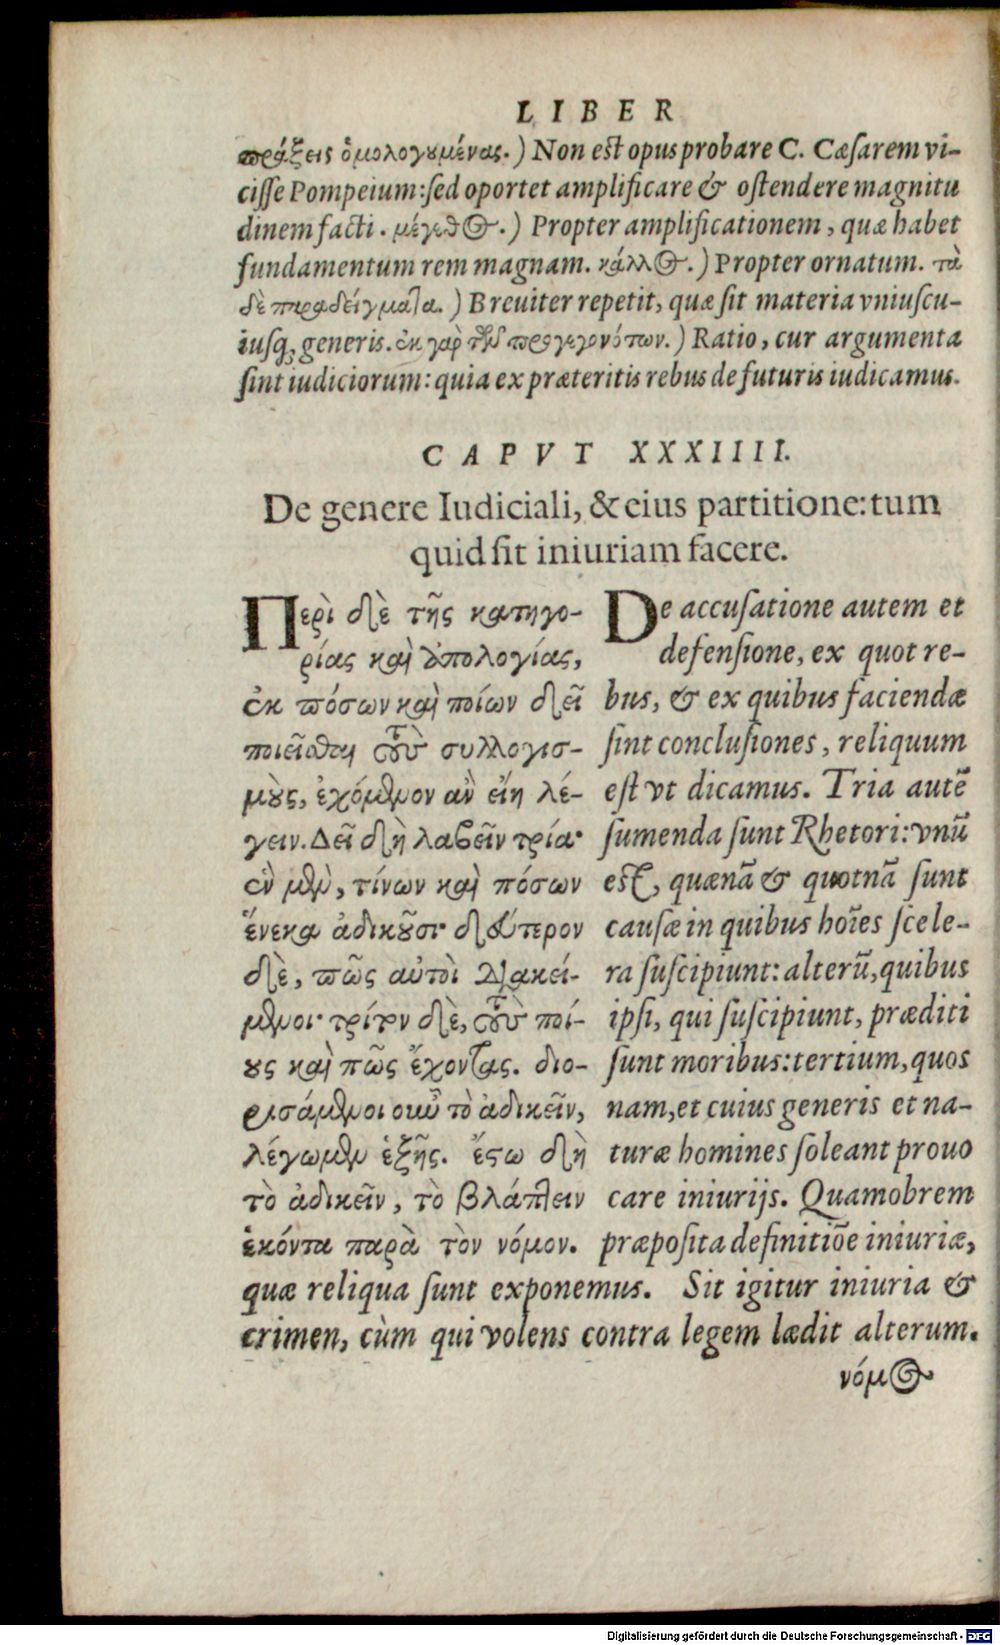 LIBER
πράξεις ὁμολογουμένας.) Non est opus probare C. Cæſarem vi-
ciſſe Pompeium: ſed oportet amplificare & oſtendere magnitu
dinem facti. μέγεθος.) Propter amplificationem, quæ habet
fundamentum rem magnam. κάλλος.) Propter ornatum. τὰ
δὲ παραδείγματα.) Breuiter repetit, quæ ſit materia vniuſcu-
iuſq; generis. ἐκ γὰρ τῶν προγεγονότων.) Ratio, cur argumenta
ſint iudiciorum: quia ex præteritis rebus de futuris iudicamus.
CAPVT XXXIIII.
De genere Iudiciali, & eius partitione: tum
quid ſit iniuriam facere.
Περὶ δὲ τῆς κατηγο-
ρίας καὶ ἀπολογίας,
ἐκ πόσων καὶ ποίων δεῖ
ποιεῖσθαι τοὺς συλλογισ-
μοὺς, ἐχόμενον ἂν εἴη λέ-
γειν. Δεῖ δὴ λαβεῖν τρία·
ἓν μὲν, τίνων καὶ πόσων
ἕνεκα ἀδικοῦσι· δεύτερον
δὲ, πῶς αὐτοὶ διακεί-
μενοι· τρίτον δὲ, τοὺς ποί-
ους καὶ πῶς ἔχοντας. διο-
ρισάμενοι οὖν τὸ ἀδικεῖν,
λέγωμεν ἑξῆς. ἔστω δὴ
τὸ ἀδικεῖν, τὸ βλάπτειν
ἑκόντα παρὰ τὸν νόμον.
De accuſatione autem et
defenſione, ex quot re-
bus, & ex quibus faciendæ
ſint concluſiones, reliquum
eſt vt dicamus. Tria autē
ſumenda ſunt Rhetori: vnū
eſt, quænā & quotnā ſunt
cauſæ in quibus hoīes ſcele-
ra ſuſcipiunt: alterū, quibus
ipſi, qui ſuſcipiunt, præditi
ſunt moribus: tertium, quos
nam, et cuius generis et na-
turæ homines ſoleant prouo
care iniurijs. Quamobrem
præpoſita definitiōe iniuriæ,
quæ reliqua ſunt exponemus. Sit igitur iniuria &
crimen, cùm qui volens contra legem lædit alterum.
νόμος
Digitalisierung gefördert durch die Deutsche Forschungsgemeinschaft - DFG